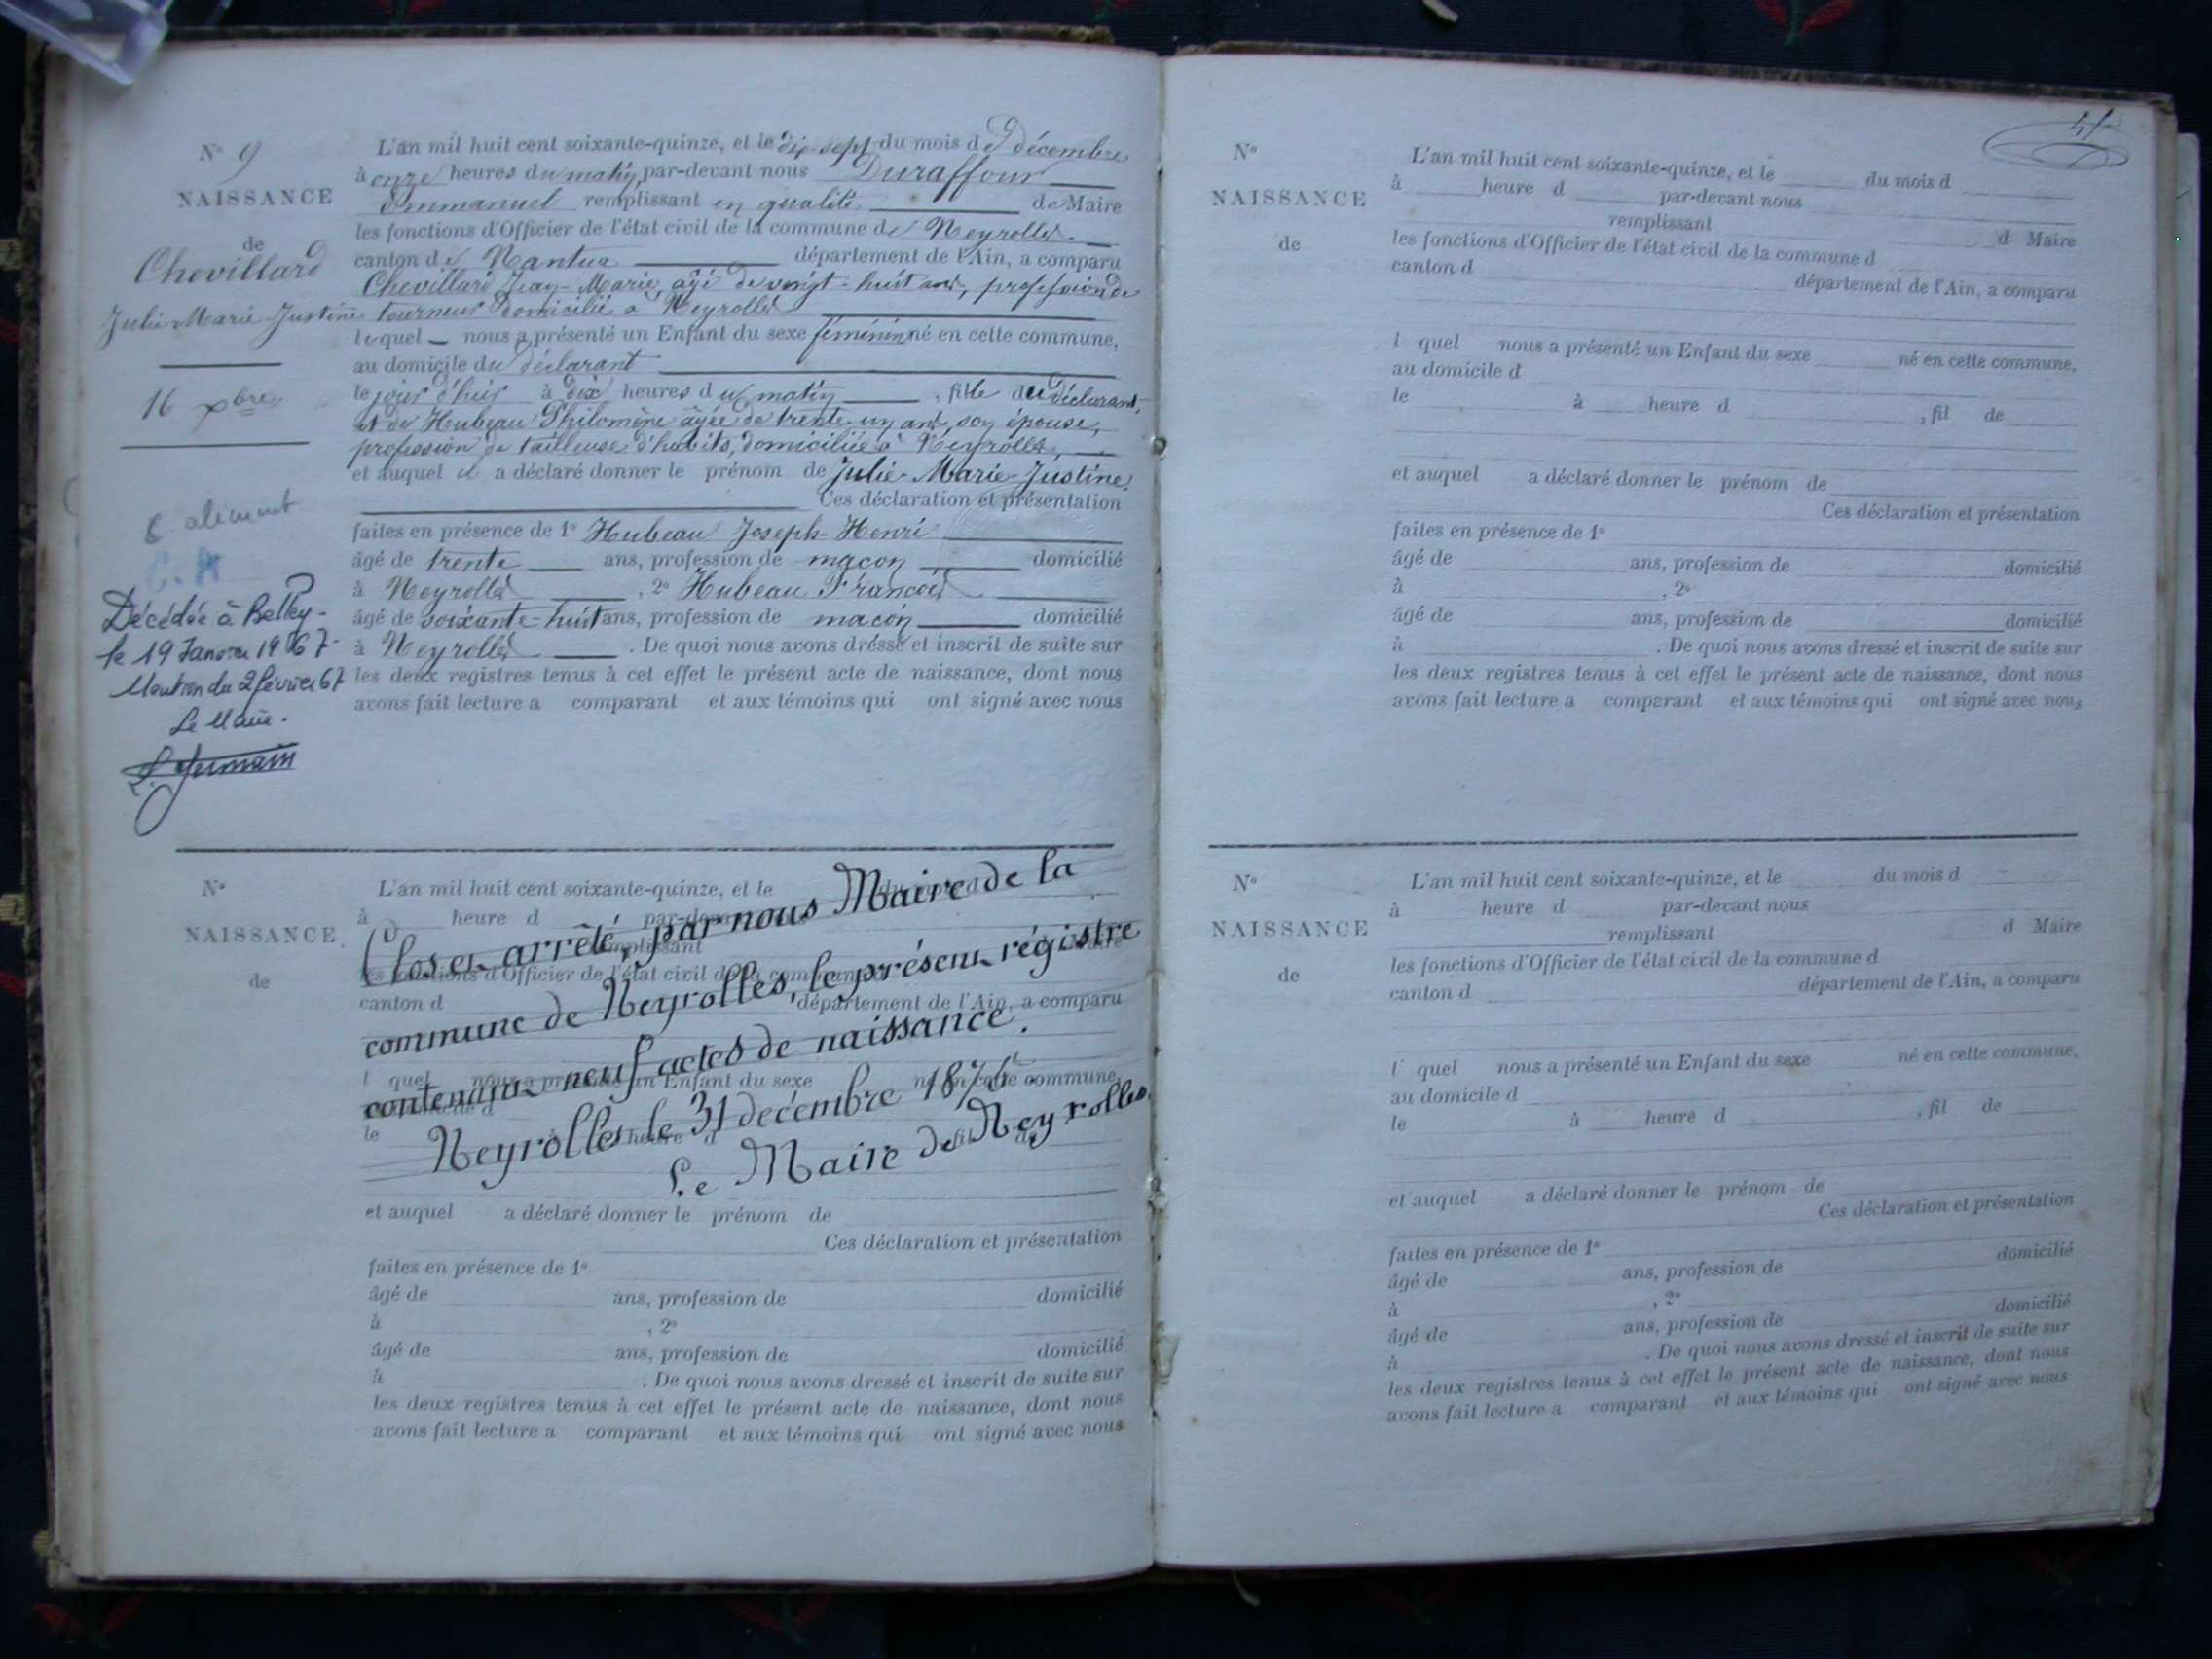 N° 9
NAISSANCE
de
Chevillard
Julie-Marie-Justine
16 Xbre
C. A
Décédée à Belley -
le 19 Janvier 1967 -
Mention du 2 février 67
Le Maire.
L. Germain
L'an mil huit cent soixante-quinze, et le dix-sept du mois de décembre
à onze heures du matin, par-devant nous Duraffour
Emmanuel remplissant en qualité de Maire
les fonctions d'Officier de l'état civil de la commune de Neyrolles.
canton de Nantua département de l'Ain, a comparu
Chevillard Jean-Marie, âgé de vingt-huit ans, profession de
tourneur domicilié à Neyrolles
lequel nous a présenté un Enfant du sexe féminin né en cette commune,
au domicile du déclarant
le jour d'hier à dix heures du matin, fille du déclarant,
et de Hubeau Philomène âgée de trente-un ans, son épouse,
profession de tailleuse d'habits, domiciliée à Neyrolles,
et auquel il a déclaré donner le prénom de Julie-Marie-Justine.
Ces déclaration et présentation
faites en présence de 1° Hubeau Joseph-Henri
âgé de trente ans, profession de maçon domicilié
à Neyrolles , 2° Hubeau François
âgé de soixante-huit ans, profession de maçon domicilié
à Neyrolles . De quoi nous avons dressé et inscrit de suite sur
les deux registres tenus à cet effet le présent acte de naissance, dont nous
avons fait lecture a comparant et aux témoins qui ont signé avec nous
N°
NAISSANCE
de
L'an mil huit cent soixante-quinze, et le
à heure d
Clos et arrêté, par nous Maire de la
les fonctions d'Officier de l'état civil de la commune
canton d département de l'Ain, a comparu
commune de Neyrolles, le présent régistre
contenant neuf actes de naissance.
l quel nous a présenté un Enfant du sexe né en cette commune,
Neyrolles le 31 décembre 1875.
le heure d fil de
Le Maire de Neyrolles
et auquel a déclaré donner le prénom de
Ces déclaration et présentation
faites en présence de 1°
âgé de ans, profession de domicilié
à , 2°
âgé de ans, profession de domicilié
à . De quoi nous avons dressé et inscrit de suite sur
les deux registres tenus à cet effet le présent acte de naissance, dont nous
avons fait lecture a comparant et aux témoins qui ont signé avec nous
N°
NAISSANCE
de
L'an mil huit cent soixante-quinze, et le du mois d
à heure d par-devant nous
remplissant d Maire
les fonctions d'Officier de l'état civil de la commune d
canton d département de l'Ain, a comparu
l quel nous a présenté un Enfant du sexe né en cette commune,
au domicile d
le à heure d , fil de
et auquel a déclaré donner le prénom de
Ces déclaration et présentation
faites en présence de 1°
âgé de ans, profession de domicilié
à , 2°
âgé de ans, profession de domicilié
à . De quoi nous avons dressé et inscrit de suite sur
les deux registres tenus à cet effet le présent acte de naissance, dont nous
avons fait lecture a comparant et aux témoins qui ont signé avec nous
N°
NAISSANCE
de
L'an mil huit cent soixante-quinze, et le du mois d
à heure d par-devant nous
remplissant d Maire
les fonctions d'Officier de l'état civil de la commune d
canton d département de l'Ain, a comparu
l quel nous a présenté un Enfant du sexe né en cette commune,
au domicile d
le à heure d , fil de
et auquel a déclaré donner le prénom de
Ces déclaration et présentation
faites en présence de 1°
âgé de ans, profession de domicilié
à , 2°
âgé de ans, profession de domicilié
à . De quoi nous avons dressé et inscrit de suite sur
les deux registres tenus à cet effet le présent acte de naissance, dont nous
avons fait lecture a comparant et aux témoins qui ont signé avec nous